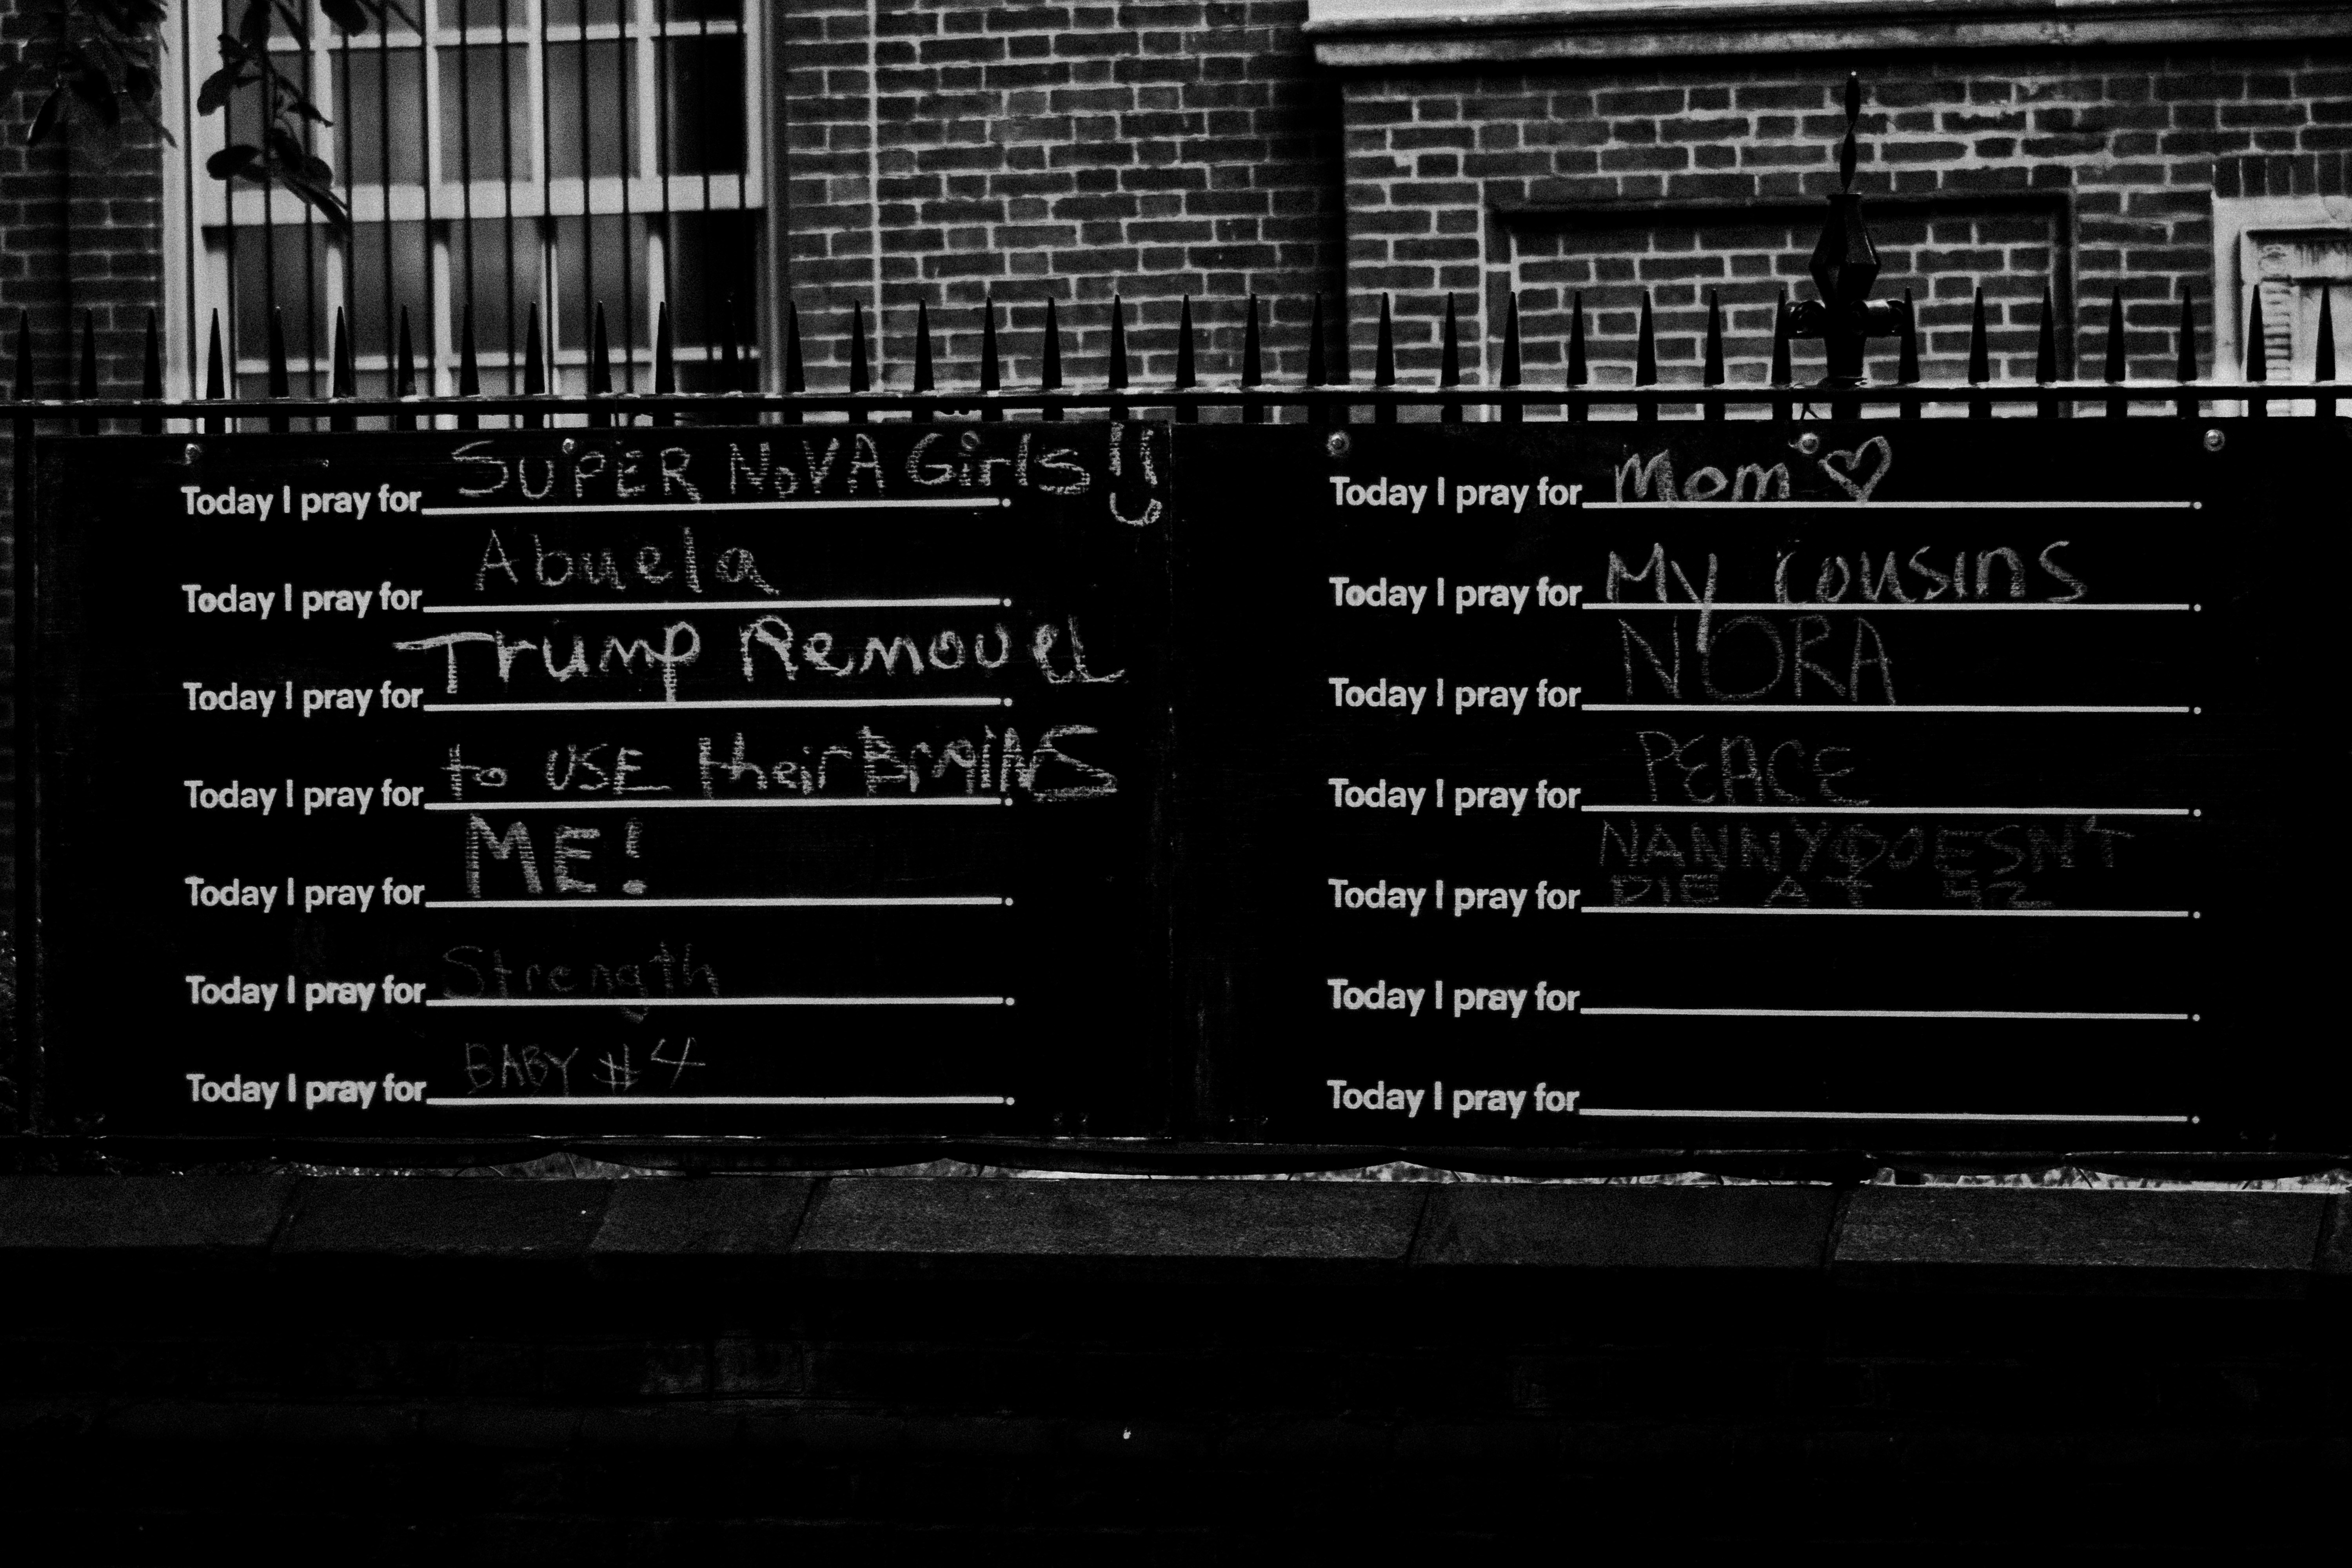 Today I pray for SUPER NOVA Girls!!
Today I pray for Abuela.
Today I pray for Trump Removel.
Today I pray for to USE their BRAINS.
Today I pray for ME!.
Today I pray for Strength.
Today I pray for BABY #4.
Today I pray for Mom.
Today I pray for My cousins.
Today I pray for NORA.
Today I pray for PEACE.
NANNY DOESN'T
Today I pray for DIE AT 92.
Today I pray for.
Today I pray for.